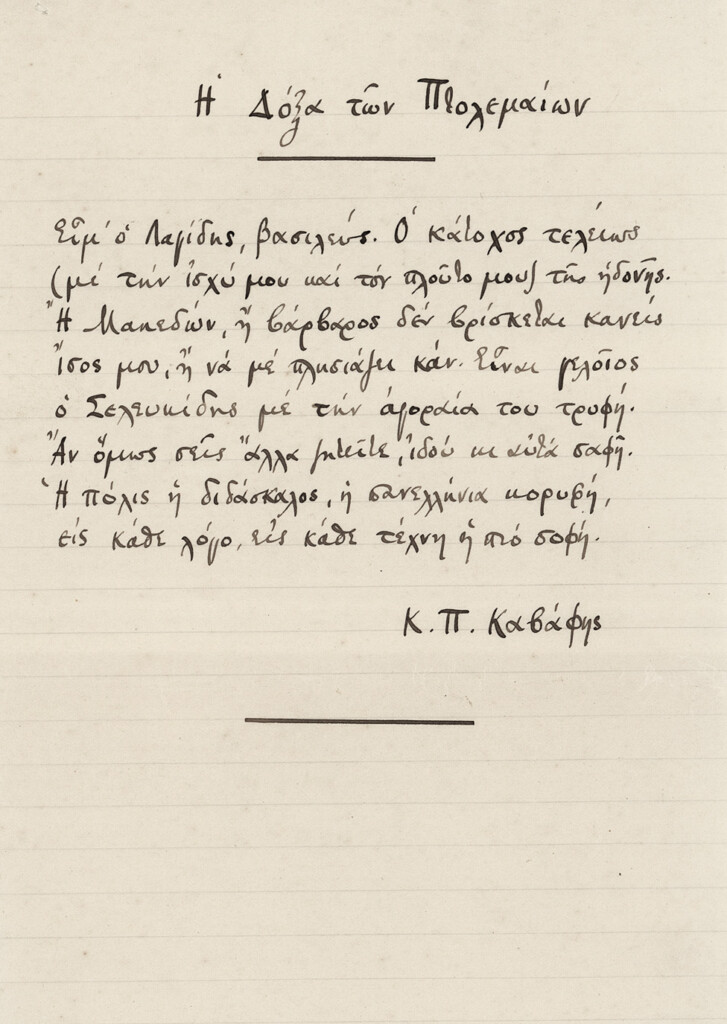 Ἡ Δόξα τῶν Πτολεμαίων
Εἶμ' ὁ Λαγίδης, βασιλεύς. Ὁ κάτοχος τελείως
(μέ τήν ἰσχύ μου καί τόν πλοῦτο μου) τῆς ἡδονῆς.
Ἤ Μακεδών, ἤ βάρβαρος δέν βρίσκεται κανείς
ἴσος μου, ἤ νά μέ πλησιάζει κάν. Εἶναι γελοῖος
ὁ Σελευκίδης μέ τήν ἀγοραία του τρυφή.
Ἄν ὅμως σεῖς ἄλλα ζητεῖτε, ἰδού κι αὐτά σαφῆ.
Ἡ πόλις ἡ διδάσκαλος, ἡ πανελλήνια κορυφή,
εἰς κάθε λόγο, εἰς κάθε τέχνη ἡ πιό σοφή.
Κ. Π. Καβάφης